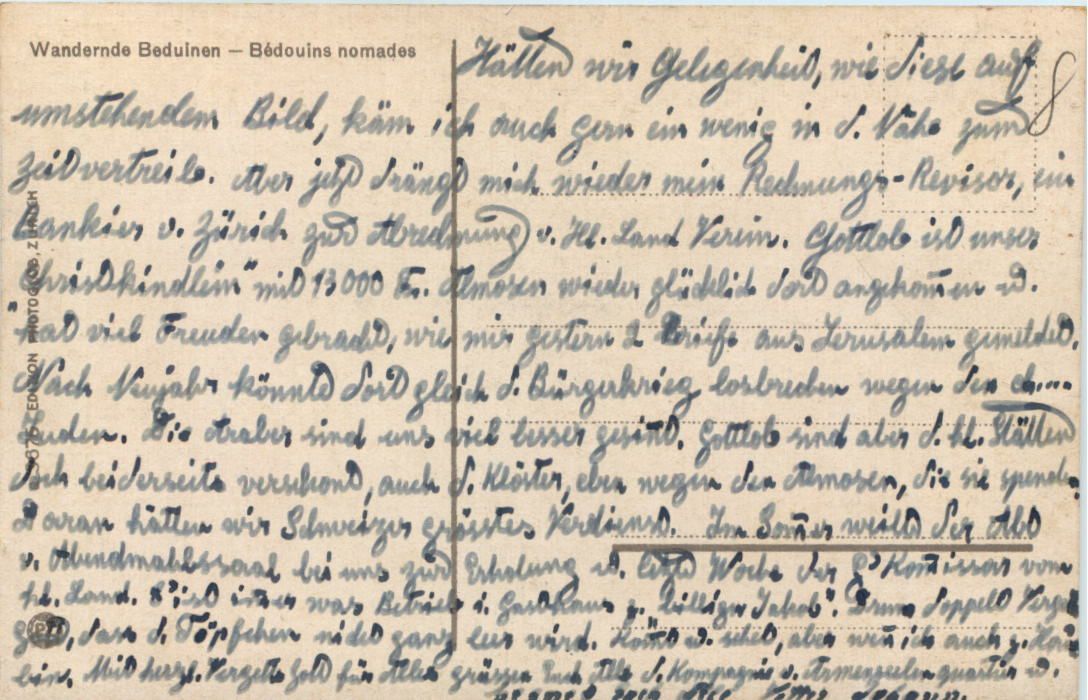 Wandernde Beduinen — Bédouins nomades
Hätten wir Gelegenheit, wie diese auf
umstehendem Bild, käm ich auch gern ein wenig in d. Nähe zum
Zeitvertreib. Aber jetzt drängt mich wieder mein Rechnungs-Revisor, ein
Bankier v. Zürich zur Abrechnung v. Hl. Land Verein. Gottlob ist unser
"Christkindlein" mit 13000 Fr. Almosen wieder glücklich dort angekom̅en u.
hat viel Freuden gebracht, wie mir gestern 2 Briefe aus Jerusalem gemeldet.
Nach Neujahr könnte dort gleich d. Bürgerkrieg losbrechen wegen den
Juden. Die Araber sind uns viel besser gesinnt. Gottlob sind aber d. hl. Stätten
doch beiderseits verschont, auch d. Klöster, eben wegen den Almosen, die sie spenden.
Daran hätten wir Schweizer grösstes Verdienst. Im Som̅er weilte der Abt
v. Abendmahlssaal bei uns zur Erholung u. letzte Woche der Kom̅issar vom
hl. Land. 's ist im̅er was Betrieb i. Gasthaus z. "billigen Jakob". Drum doppelt
Gott, dass d. Töpfchen nicht ganz leer wird. Kom̅t u. sehet, aber wen̅ ich auch z.
bin. Mit herzl. Vergelts Gott für Alles grüssen Euch Alle d. Kompagnie v. Armenseelenquartier u.
8
EDITION PHOTOGLOB, ZÜRICH